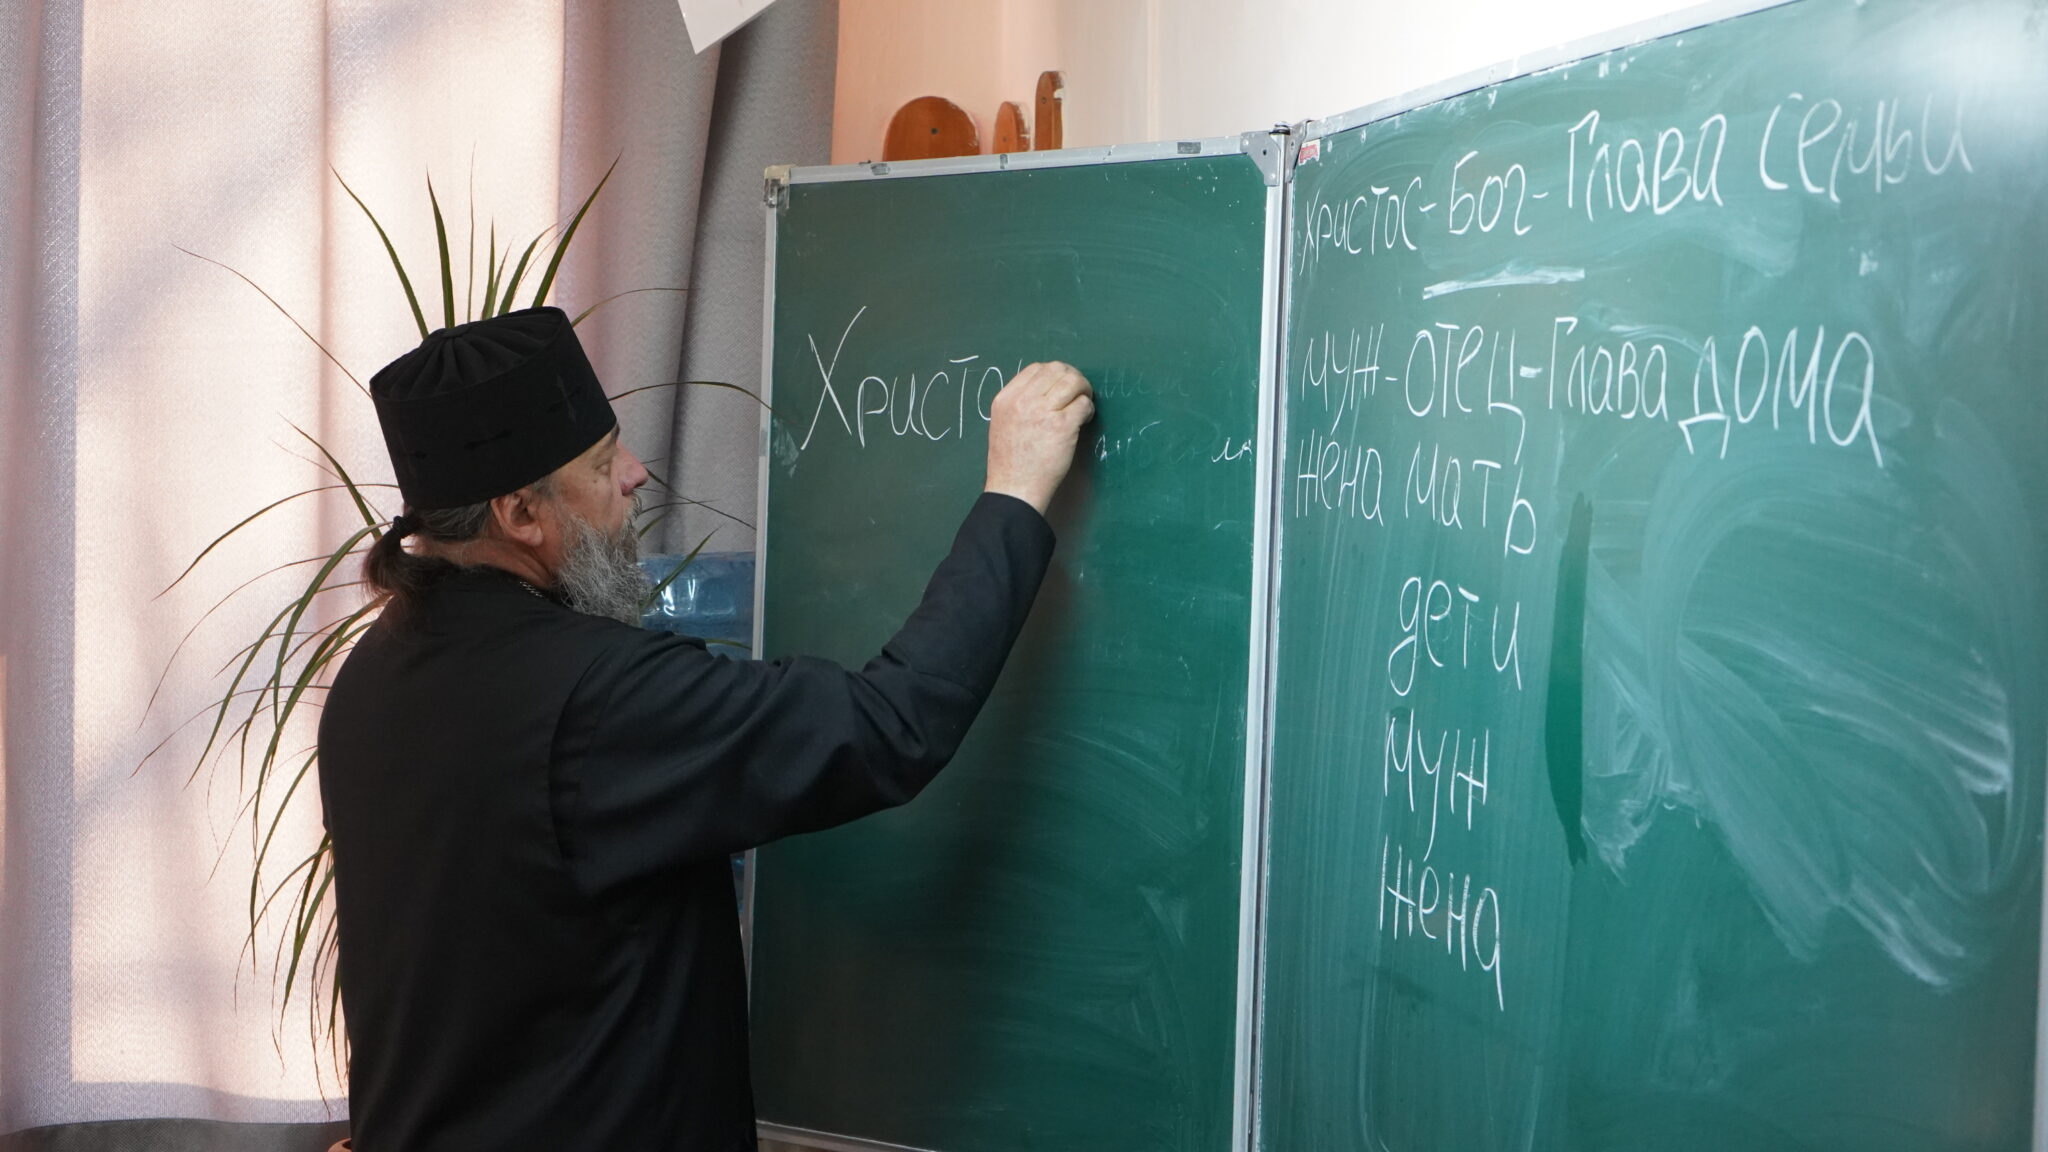 Христо
Христос-Бог-Глава семьи
муж-отец-Глава дома
жена мать
дети
муж
жена